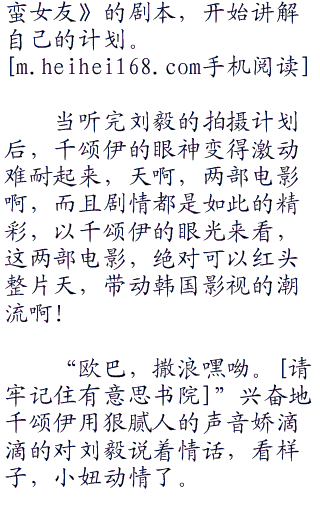 蛮女友》的剧本，开始讲解
自己的计划。
[m.heihei168.com手机阅读]
当听完刘毅的拍摄计划
后，千颂伊的眼神变得激动
难耐起来，天啊，两部电影
啊，而且剧情都是如此的精
彩，以千颂伊的眼光来看，
这两部电影，绝对可以红头
整片天，带动韩国影视的潮
流啊！
“欧巴，撒浪嘿呦。[请
牢记住有意思书院]”兴奋地
千颂伊用狠腻人的声音娇滴
滴的对刘毅说着情话，看样
子，小妞动情了。